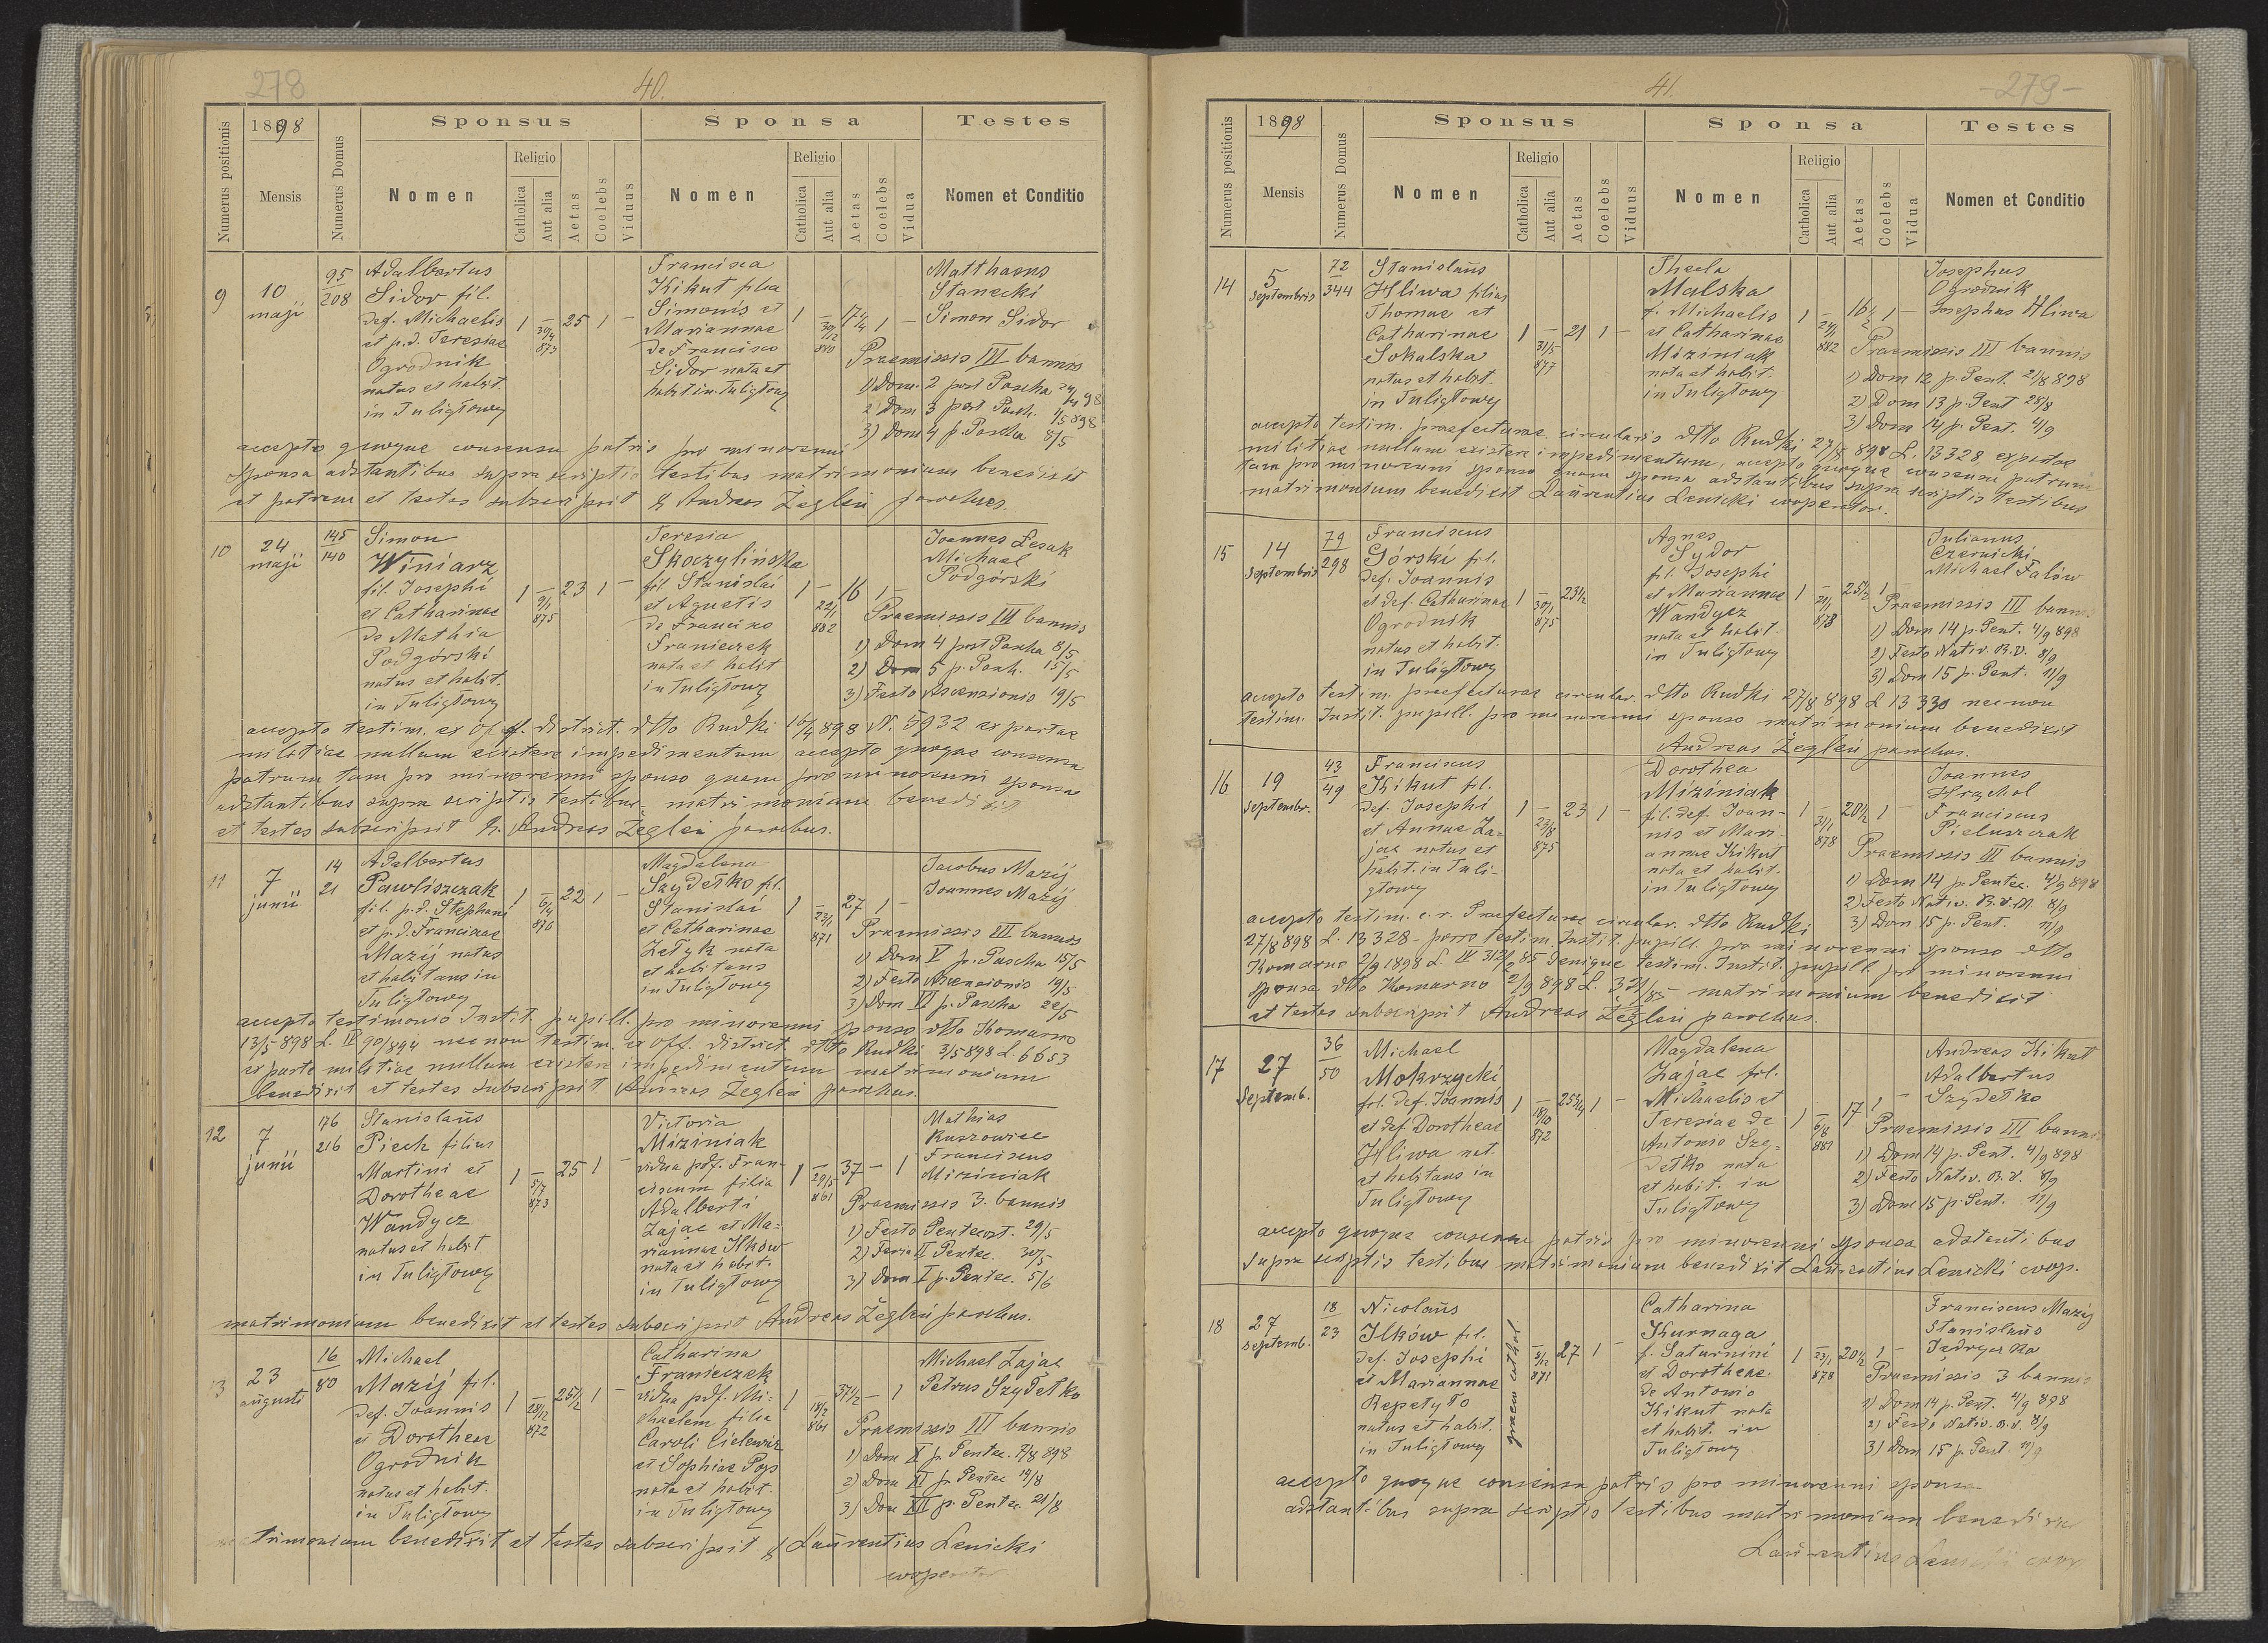 278
40.
Numerus positionis
1898
Mensis
Numerus Domus
Sponsus
Sponsa
Testes
Nomen
Religio
Catholica
Aut alia
Aetas
Coelebs
Viduus
Nomen
Religio
Catholica
Aut alia
Aetas
Coelebs
Vidua
Nomen et Conditio
9
10
maji
95
208
Adalbertus
Sidor fil.
def. Michaelis
et p.d. Teresiae
Ogrodnik
natus et habit.
in Tuligłowy
1 – 25 1 –
30/4
873
Francisca
Kikut filia
Simonis et
Mariannae
de Francisco
Sidor nata et
habit. in Tuligłowy
1 – 17 1/4 1 –
30/12
880
Matthaeus
Stanecki
Simon Sidor
Praemissis III bannis
1) Dom. 2 post Pascha 24/4 98
2) Dom 3 post Pasch. 1/5 898
3) Dom 4 p. Pascha 8/5
accepto quoque consensu patris pro minorenni
sponsa adstantibus supra scriptis testibus matrimonium benedixit
et patrem et testes subscripsit Andreas Żegleń parochus.
10
24
maji
145
140
Simon
Winiarz
fil. Josephi
et Catharinae
de Mathia
Podgórski
natus et habit.
in Tuligłowy
1 – 23 1 –
9/1
875
Teresia
Skoczylińska
fil. Stanislai
et Agnetis
de Francisco
Franieczek
nata et habit
in Tuligłowy
1 – 16 1 –
22/1
882
Joannes Lesak
Michael
Podgórski
Praemissis III bannis
1) Dom 4 post Pascha 8/5
2) Dom 5 p. Pasch. 15/5
3) Festo Ascensionis 19/5
accepto testim. ex Off. district. dtto Rudki 16/4 898 N. 5932 ex parte
militiae nullum existere impedimentum, accepto quoque consensu
patrum tam pro minorenni sponso quam pro minorenni sponsa
adstantibus supra scriptis testibus matrimonium benedixit
et testes subscripsit Andreas Żegleń parochus.
11
7
junii
14
21
Adalbertus
Pawliszczak
fil. p.d. Stephani
et p.d. Franciscae
Mazij natus
et habitans in
Tuligłowy
1 – 22 1 –
6/4
876
Magdalena
Szydełko fil.
Stanislai
et Catharinae
Zełyk nata
et habitans
in Tuligłowy
1 – 27 1 –
23/1
871
Jacobus Mazij
Joannes Mazij
Praemissis III bannis
1) Dom V p. Pascha 15/5
2) Festo Ascensionis 19/5
3) Dom VI p. Pascha 22/5
accepto testimonio Instit. pupill. pro minorenni sponso dtto Komarno
13/5 898 L. IV 90/894 necnon testim. ex Off. district. dtto Rudki 3/5 898 L. 6653
ex parte militiae nullum existere impedimentum matrimonium
benedixit et testes subscripsit Andreas Żegleń parochus.
12
7
junii
176
216
Stanislaus
Piech filius
Martini et
Dorotheae
Wandycz
natus et habit
in Tuligłowy
1 – 25 1
5/7
873
Victoria
Miziniak
vidua pdf. Fran-
ciscum filia
Adalberti
Zając et Ma=
riannae Ilków
nata et habit.
in Tuligłowy
1 – 37 – 1
29/5
861
Mathias
Ruszowiec
Franciscus
Miziniak
Praemissis 3. bannis
1) Festo Pentecost. 29/5
2) Feria II Pentec. 30/5
3) Dom I p. Pentec. 5/6
matrimonium benedixit et testes subscripsit Andreas Żegleń parochus.
13
23
augusti
16
80
Michael
Mazij fil.
def. Joannis
et Dorotheae
Ogrodnik
natus et habit.
in Tuligłowy
1 – 25 1/2 1 –
28/12
872
Catharina
Franieczek
vidua pdf. Mi=
chaelem filia
Caroli Cielewicz
et Sophiae Pops
nata et habit.
in Tuligłowy
1 – 37 1/2 – 1
18/2
861
Michael Zając
Petrus Szydełko
Praemissis III bannis
1) Dom X p. Pentec. 7/8 898
2) Dom XI p. Pentec 14/8
3) Dom XII p. Pentec. 21/8
matrimonium benedixit et testes subscripsit Laurentius Lenicki
cooperator
41.
-279-
Numerus positionis
1898
Mensis
Numerus Domus
Sponsus
Sponsa
Testes
Nomen
Religio
Catholica
Aut alia
Aetas
Coelebs
Viduus
Nomen
Religio
Catholica
Aut alia
Aetas
Coelebs
Vidua
Nomen et Conditio
14
5
Septembris
72
344
Stanislaus
Hliwa filius
Thomae et
Catharinae
Sokalska
natus et habit.
in Tuligłowy
1 – 21 1 –
31/5
877
Thecla
Malska
f. Michaelis
et Catharinae
Miziniak
nata et habit.
in Tuligłowy
1 – 16 1/2 1 –
24/1
882
Josephus
Ogrodnik
Josephus Hliwa
Praemissis III bannis
1) Dom 12 p. Pent. 21/8 898
2) Dom 13 p. Pent 28/8
3) Dom 14 p. Pent. 4/9
accepto testim. praefecturae circularis dtto Rudki 27/8 898 L. 13328 ex parte
militiae nullum existere impedimentum, accepto quoque consensu patrum
tam pro minorenni sponso quam sponsa adstantibus supra scriptis testibus
matrimonium benedixit Laurentius Lenicki cooperator.
15
14
Septembris
79
298
Franciscus
Górski fil.
def. Joannis
et def. Catharinae
Ogrodnik
natus et habit.
in Tuligłowy
1 – 23 1/2
30/1
875
Agnes
Sydor
fil. Josephi
et Mariannae
Wandycz
nata et habit.
in Tuligłowy
1 – 25 1/2 1
21/1
873
Julianus
Czernicki
Michael Falów
Praemissis III bannis
1) Dom 14 p. Pent. 4/9 898
2) Festo Nativ. B.V. 8/9
3) Dom 15 p. Pent. 11/9
accepto testim. praefecturae circular. dtto Rudki 27/8 898 L 13330 necnon
testim. Instit. pupill. pro minorenni sponso matrimonium benedixit
Andreas Żegleń parochus.
16
19
Septembr.
43
49
Franciscus
Kikut fil.
def. Josephi
et Annae Za=
jac natus et
habit. in Tuli-
głowy
1 – 23 1 –
23/8
875
Dorothea
Miziniak
fil. def. Joan-
nis et Mari-
annae Kikut
nata et habit.
in Tuligłowy
1 – 20 1/2 1 –
31/1
878
Joannes
Hrachol
Franciscus
Pieluszczak
Praemissis III bannis
1) Dom 14 p. Pentec. 4/9 898
2) Festo Nativ. B.V.M. 8/9
3) Dom 15 p. Pent. 11/9
accepto testim. c. r. Praefecturae circular. dtto Rudki
27/8 898 L. 13328 – porro testim. Instit. pupill. pro minorenni sponso dtto
Komarno 2/9 1898 L. IV denique testim. Instit. pupill. pro minorenni
sponsa dtto Komarno 2/9 898 L. matrimonium benedixit
et testes subscripsit Andreas Żegleń parochus.
17
27
Septemb.
36
50
Michael
Mokrzycki
fil. def. Joannis
et def. Dorotheae
Hliwa nat.
et habitans in
Tuligłowy
1 – 25 3/4 1 –
18/10
872
Magdalena
Zając fil.
Michaelis et
Teresiae de
Antonio Szy-
dełko nata
et habit. in
Tuligłowy
1 – 17 1 –
6/8
881
Andreas Kikut
Adalbertus
Szydełko
Praemissis III bannis
1) Dom 14 p. Pent. 4/9 898
2) Festo Nativ. B.V. 8/9
3) Dom 15 p. Pent. 11/9
accepto quoque consensu patris pro minorenni sponsa adstantibus
supra scriptis testibus matrimonium benedixit Laurentius Lenicki coop.
18
27
Septemb.
18
23
Nicolaus
Ilków fil.
def. Josephi
et Mariannae
Repetyło
natus et habit.
in Tuligłowy
graeco cathol.
– 27 1 –
8/12
871
Catharina
Kurnaga
f. Saturnini
et Dorotheae
de Antonio
Kikut nata
et habit. in
Tuligłowy
1 – 20 1/2 1 –
23/1
878
Franciscus Mazij
Stanislaus
Jędryczka
Praemissis 3 bannis
1) Dom 14 p. Pent. 4/9 898
2) Festo Nativ. B.V. 8/9
3) Dom 15 p. Pent. 11/9
accepto quoque consensu patris pro minorenni sponsa
adstantibus supra scriptis testibus matrimonium benedixit
Laurentius Lenicki coop.